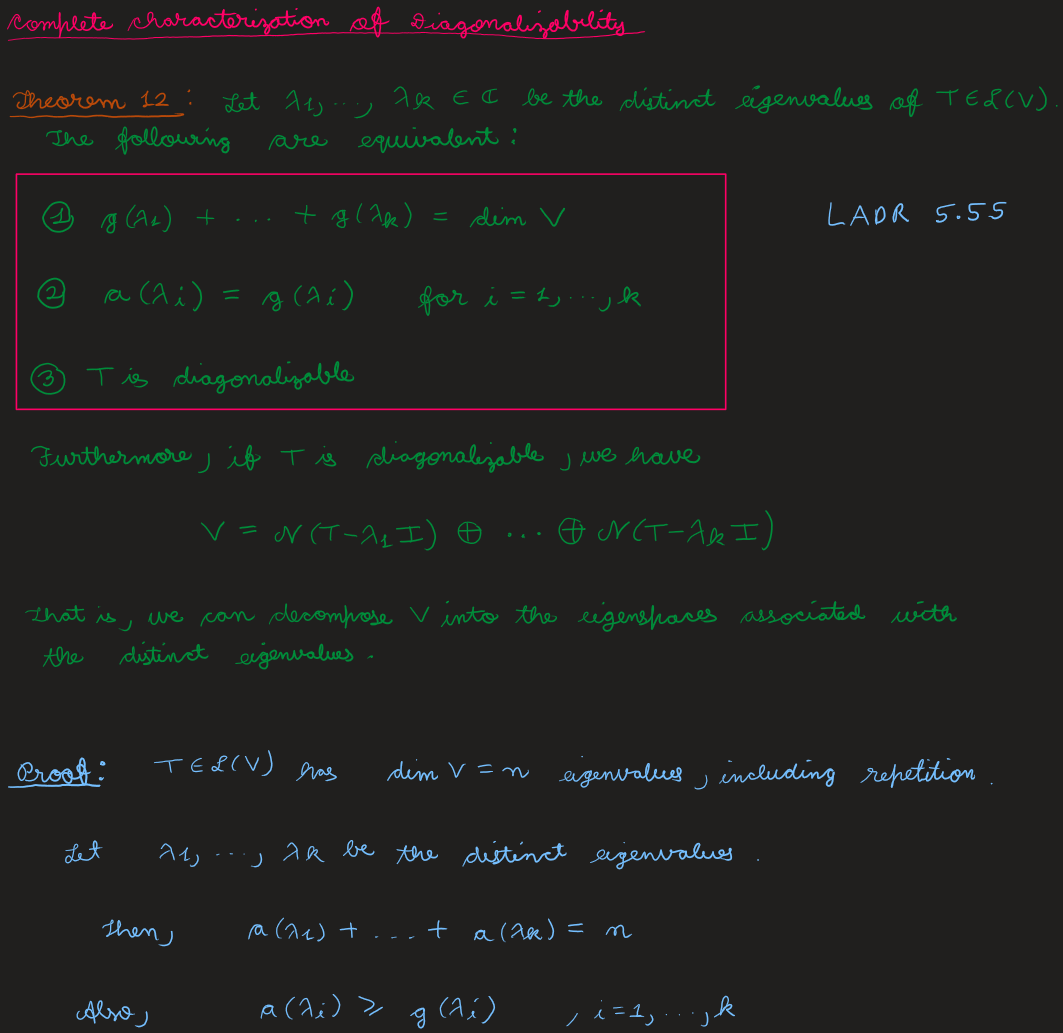 Complete characterization of Diagonalizability
Theorem 12 : Let λ1, ..., λk ∈ ℂ be the distinct eigenvalues of T ∈ ℒ(V).
The following are equivalent :
① g(λ1) + ... + g(λk) = dim V
LADR 5.55
② a(λi) = g(λi) for i = 1, ..., k
③ T is diagonalizable
Furthermore, if T is diagonalizable, we have
V = 𝒩(T-λ1I) ⊕ ... ⊕ 𝒩(T-λkI)
That is, we can decompose V into the eigenspaces associated with
the distinct eigenvalues.
Proof : T ∈ ℒ(V) has dim V = n eigenvalues, including repetition.
Let λ1, ..., λk be the distinct eigenvalues.
Then, a(λ1) + ... + a(λk) = n
Also, a(λi) ≥ g(λi) , i=1, ..., k